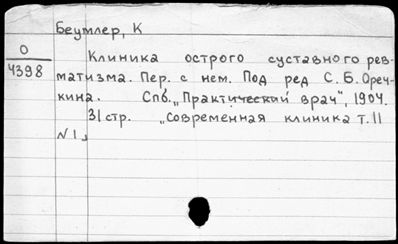 Беумлер, К
О
4398
Клиника острого суставного рев-
матизма. Пер. с нем. Под ред С. Б. Ореч-
кина. Спб. „Практический врач", 1904.
31 стр. „Современная клиника т. II
N 1„